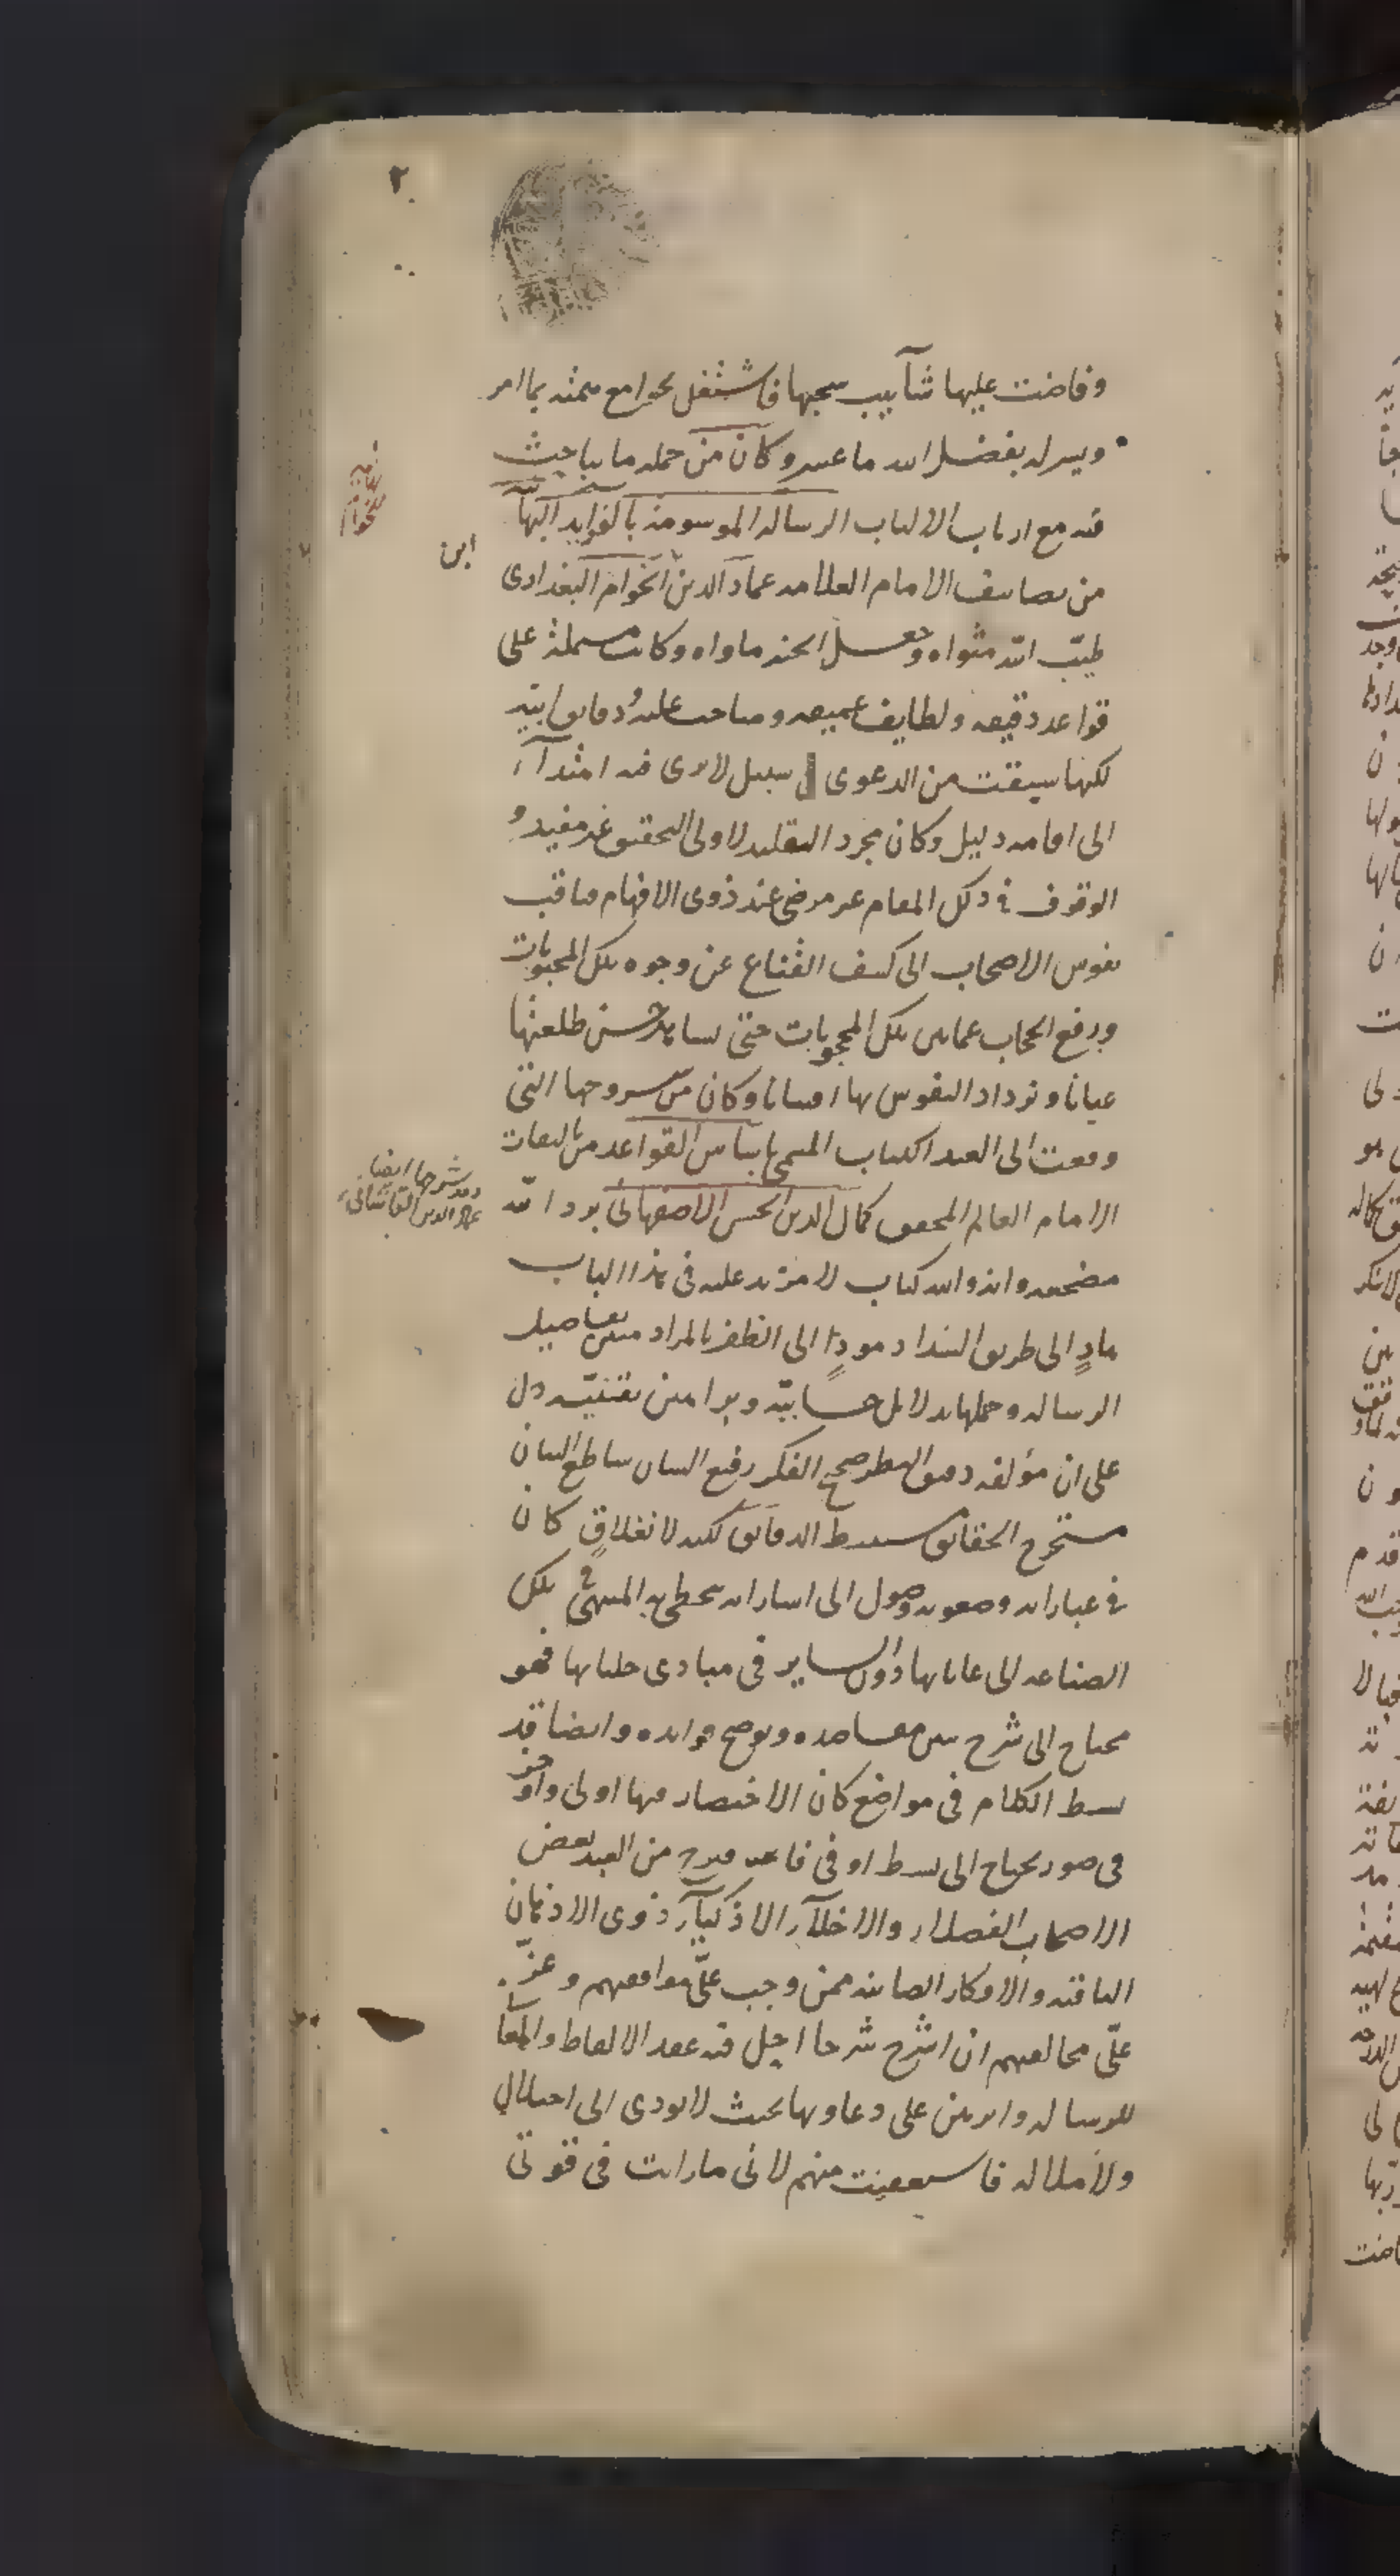 ٢
وفاضت عليها شآبيب سحبها فاشتغل بجوامع همته بما امر
ويسر له بفضل الله ما عسر وكان من جملة ما يباحث
فيه مع ارباب الالباب الرسالة الموسومة بالفوايد البهائية
من تصانيف الامام العلامه عماد الدين الخوام البغدادى
ابن
طيب الله مثواه وجعل الجنة ماواه وكانت مشتملة على
قواعد دقيقه ولطايف عميقه ومباحث علية ودقايق ابية
لكنها سيقت من الدعوى الى سبيل لا يرى فيه امتدآء
الى اقامة دليل وكان مجرد التقليد لاولى التحقيق غير مفيد و
الوقوف فى ذلك المقام غير مرضى عند ذوى الافهام فتاقت
نفوس الاصحاب الى كشف القناع عن وجوه تلك المحبوبات
ورفع الحجاب عما بين تلك المحجوبات حتى تشاهد حسن طلعتها
عيانا وتزداد النفوس بها افتنانا وكان من شروحها التى
وقعت الى العبد الكتاب المسمى باساس القواعد من تاليفات
الامام العالم المحقق كمال الدين الحسن الاصفهانى برد الله
وقد شرحها ايضا
عماد الدين القاشانى
مضجعه وانه والله كتاب لا مزيد عليه فى هذا الباب
هادٍ الى طريق السداد مودٍ الى الظفر بالمراد مبين تفاصيل
الرسالة وجملها بدلايل حسابية وبراهين يقينية دل
على ان مؤلفه دقيق النظر صحيح الفكر رفيع الشان ساطع البيان
مستخرج الحقائق مستنبط الدقايق لكنه لانغلاقٍ كان
فى عباراته وصعوبة وصول الى اشاراته يحظى به المنتهى فى تلك
الصناعة الى غاياتها دون الساير فى مبادى حلباتها فهو
محتاج الى شرح يبين مقاصده ويوضح فوايده وايضا قد
بسط الكلام فى مواضع كان الاختصار فيها اولى واوجز
فى صور يحتاج الى بسط اوفى فاقترح من العبد بعض
الاصحاب الفضلاء والاخلآء الاذكيآء ذوى الاذهان
الثاقبه والافكار الصائبه ممن وجب علىّ موافقتهم وعزّ
علىّ مخالفتهم ان اشرح شرحا احل فيه عقد الالفاظ والمعانى
للرسالة وابرهن على دعاويها بحيث لا يودى الى اخلال
ولا ملالة فاستعفيت منهم لانى ما رايت فى قوتى